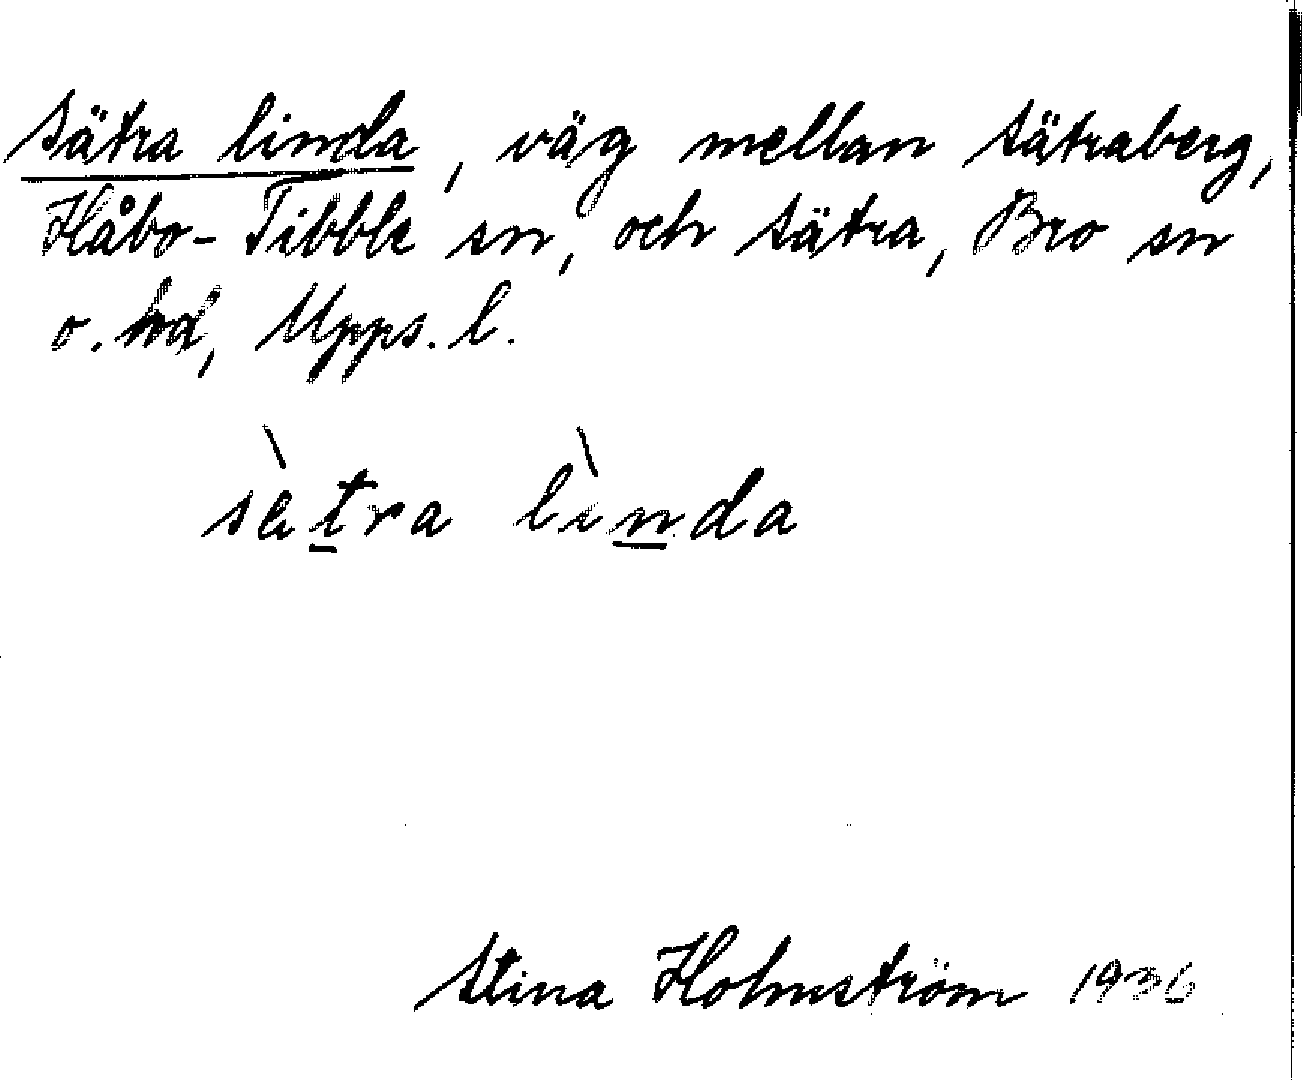 Sätra linda, väg mellan Sätraberg,
Håbo-Tibble sn, och Sätra, Bro sn
o. hd, Upps. l.
sὲtra lìnda
Stina Holmström 1936